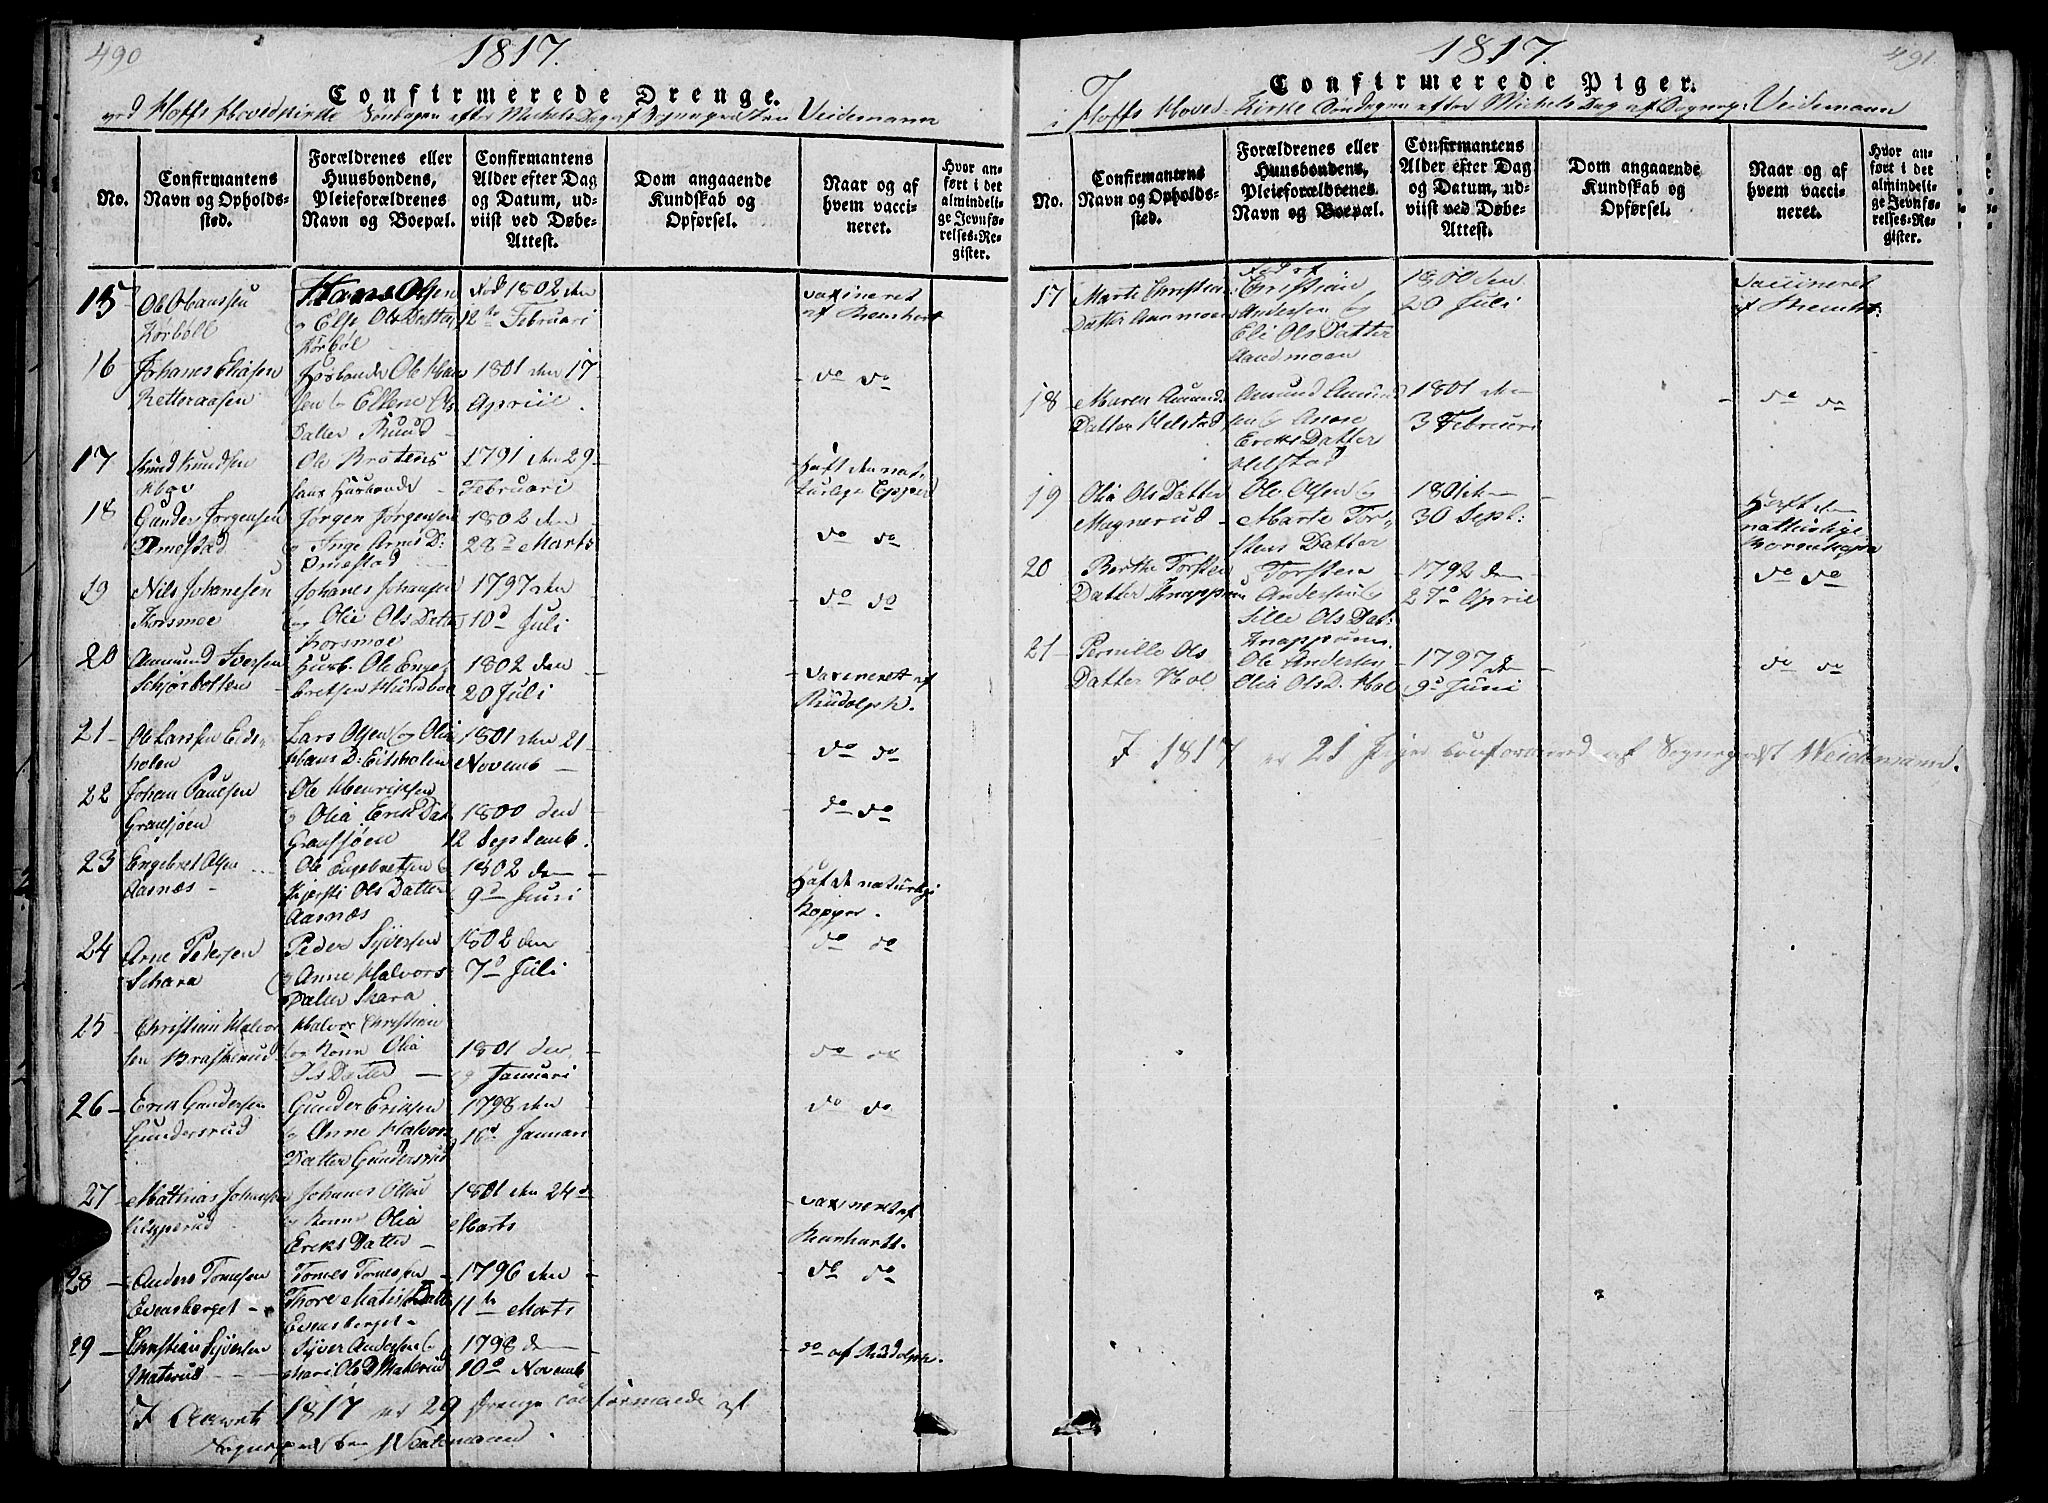 490
1817.
Confirmerede Drenge.
ved Hoffs Hovedkirke Søndagen efter Michels Dag af Sognepræsten Veidemann
No.
Confirmantens Navn og Opholdssted.
Forældrenes eller Huusbondens, Pleieforældrenes Navn og Boepæl.
Confirmantens Alder efter Dag og Datum, udviist ved Døbe-Attest.
Dom angaaende Kundskab og Opførsel.
Naar og af hvem vaccineret.
Hvor anført i det almindelige Jevnførelses-Register.
15 Ole Hanssen Kørböll
Hans Olsen og Else Ols Datter Kørböl
Fød 1802 den 12te Februari
vaxineret af
16 Johanes Eliasen Ketteraasen
Husbonde Ole Hansen og Ellene Ols Datter Ruud
1801 den 17 Apriil
do do
17 Knud Knudsen
Ole Brotens hans Husbonde
1791 den 29 Februari
Haft de naturlige Kopper
18 Gunder Jørgensen Omestad
Jørgen Jørgensen og Inge Arnes D: Omestad
1802 den 28d Marts
do do
19 Nils Johanesen Korsmoe
Johanes Johansen og Olie Ols Datter Korsmoe
1797 den 10d Juli
do do
20 Amund Iversen
Husb. Ole Engebretsen Hundboe
1802 den 20 Juli
Vaxineret af Rudolph.
21 Ole Larssen Eidsholen
Lars Olsen og Olia Hans D: Eidsholen
1801 den 21 Novemb
do do
22 Johan Paulsen Gransjøen
Ole Henriksen og Olia Eriks Dat Gransjøen
1800 den 12 Septemb.
do do
23 Engebret Olsen Aarnæs
Ole Engebretsen og Kjersti Ols Datter Aarnæs
1802 den 9d Juni
Haft de naturlige Kopper.
24 Arne Pedersen Schara
Peder Syversen og Anne Halvors Datter Skara
1802 den 7d Juli
do do
25 Christian Halvorsen Braskerud
Halvor Christian og Kone Olia Ols Datter
1801 den 9 Januari
do do
26 Erik Gundersen Gundersrud
Gunder Eriksen og Anne Halvors Datter Gundersrud
1798 den 16d Januari
do do
27 Mathias Johansen Kopperud
Johanes Olsen og Kone Olia Eriks Datter
1801 den 24d Marts
vaxineret af Reinhartt.
28 Anders Tomesen Evensberget
Tomes Tomessen Thore Matis Datter Evensberget
1796 den 11te Marts
do do
29 Christian Syversen Materud
Syver Andersen og Mari Ols D Materud
1798 den 10d Novemb
do af Rudolph.
I Aaret 1817 er 29 Drenge confirmerede af
Sognepræsten Weidemann.
1817.
491.
Confirmerede Piger.
i Hoffs Hoved-Kirke Søndagen efter Michels Dag af Sognep: Veidemann
No.
Confirmantens Navn og Opholdssted.
Forældrenes eller Huusbondens, Pleieforældrenes Navn og Boepæl.
Confirmantens Alder efter Dag og Datum, udviist ved Døbe-Attest.
Dom angaaende Kundskab og Opførsel.
Naar og af hvem vaccineret.
Hvor anført i det almindelige Jevnførelses-Register.
17 Marte Christian Datter Aamoen
Fød af Christian Andersen og Eli Ols Datter Aaudmoen
1800 den 20 Juli
Vaccineret af
18 Maren Amunds Datter Helstad
Amund Amundsen og Anne Eriks Datter Helstad
1801 den 3 Februari
do do
19 Olia Ols Datter Magnerud
Ole Olsen og Marte Torstens Datter
1801 den 30 Sept:
Haft de naturlige Børnekopper
20 Berthe Torsten Datter Knappom
Torsten Andersen og Sille Ols Dat: Knappum
1792 den 27d April
do do
21 Pernille Ols Datter Hol
Ole Andersen Olia Ols D. Hol
1797 den 9d Juni
do do
I 1817 er 21 Piger confirmered af Sognepræst Weidemann.